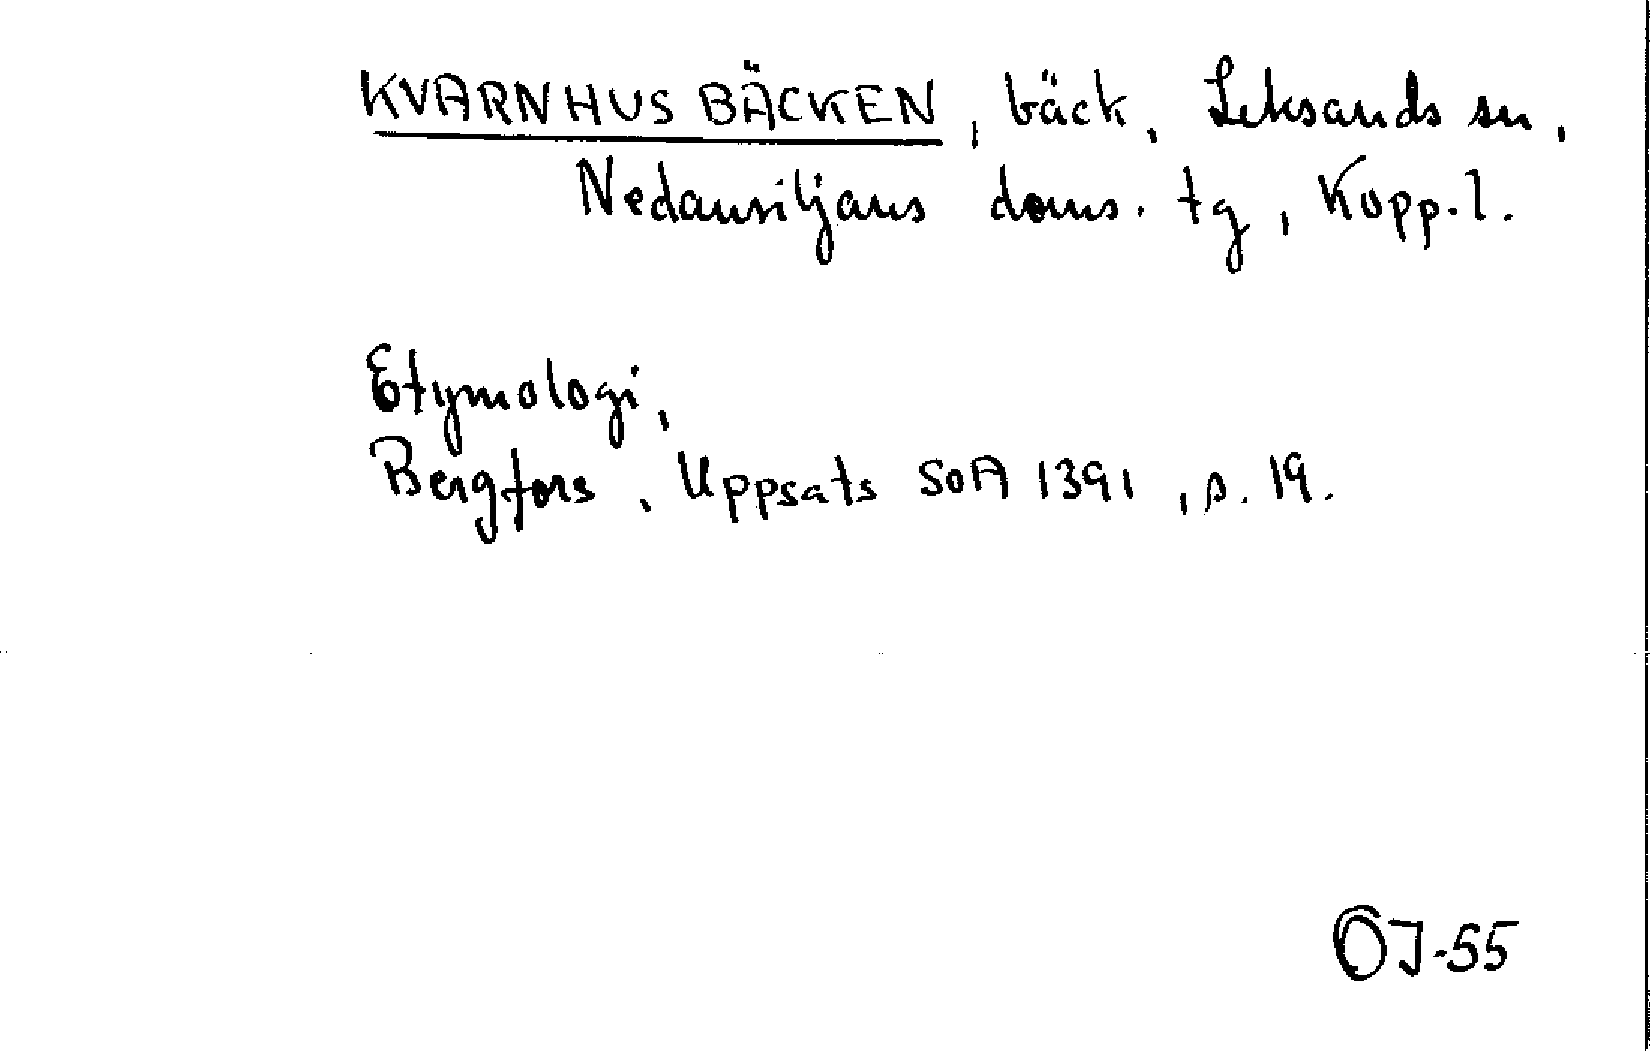 KVARNHUSBÄCKEN, bäck, Leksands sn,
Nedansiljans doms. tg, Kopp. l.
Etymologi,
Bergfors, Uppsats SOA 1391, s. 19.
OJ-55